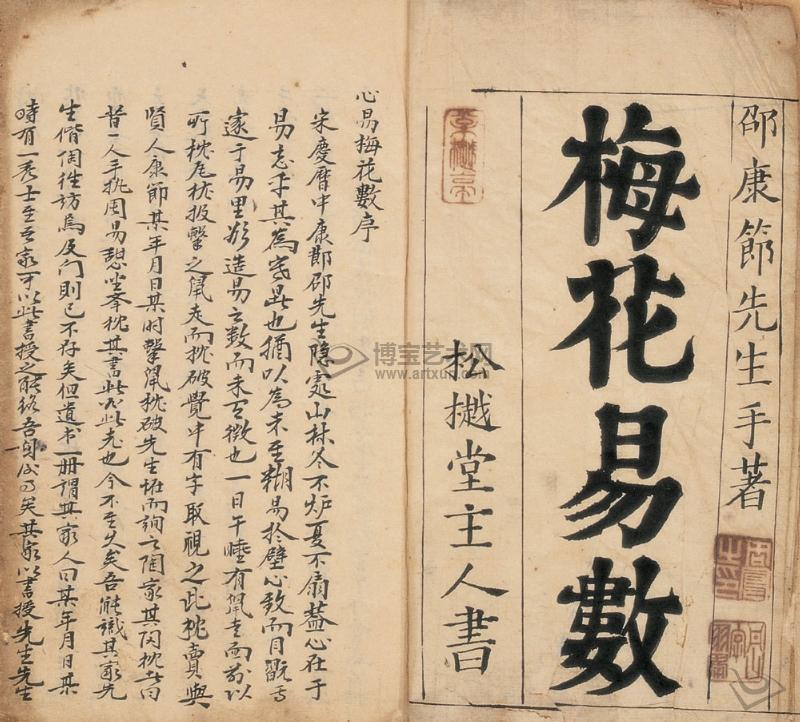 邵康節先生手著
梅花易數
松樾堂主人書
心易梅花數序
宋慶曆中康節邵先生隐處山林冬不炉夏不扇葢心在于
易忘乎其為寒暑也猶以為未至糊易於壁心致而目翫焉
邃于易里欲造易之数而未有徵也一日午睡有鼠走而前以
所枕瓦枕投擊之鼠走而枕破覺中有字取視之此枕賣與
賢人康節某年月日某时擊鼠枕破先生怪而詢之陶家其陶枕者曰
昔一人手执周易憩坐举枕其書必此老也今不至久矣吾能識其家先
生偕陶往訪焉及门則已不存矣但遺书一册謂其家人曰某年月日某
時有一秀士至吾家可以此書授之能终吾身事矣其家以書授先生先生
博宝艺术网
www.artxun.com